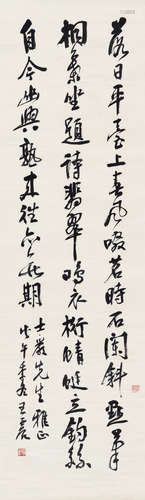 落日平臺上春風啜茗時石闌斜點筆
桐葉坐題詩翡翠鳴衣桁蜻蜓立釣絲
自今幽興熟來往亦無期
士嚴先生雅正
戊午王震